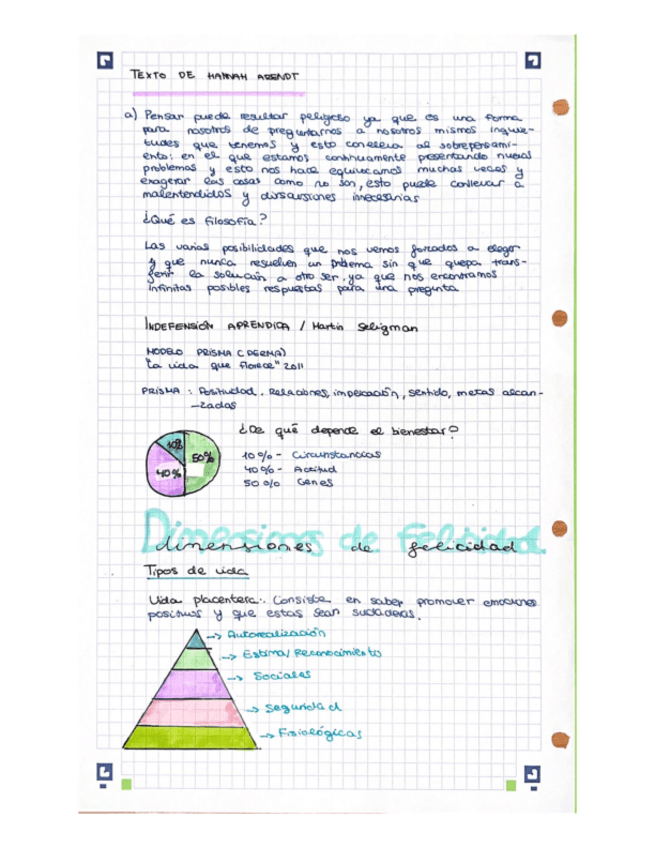 TEXTO DE HANNAH ARENDT
a) Pensar puede resultar peligroso ya que es una forma
para nosotros de preguntarnos a nosotros mismos inquie-
tudes que tenemos y esto conlleva al sobrepensami-
ento; en el que estamos continuamente presentando nuevos
problemas y esto nos hace equivocarnos muchas veces y
exagerar las cosas como no son, esto puede conllevar a
malentendidos y discursiones innecesarias
¿Qué es filosofía?
Las varias posibilidades que nos vemos forzados a elegir
y que nunca resuelven un problema sin que quepa trans-
ferir la solución a otro ser, ya que nos encontramos
infinitas posibles respuestas para una pregunta
INDEFENSIÓN APRENDIDA / Martin Seligman
MODELO PRISMA (PERMA)
"La vida que florece" 2011
PRISMA : Positividad, Relaciones, implicación, sentido, metas alcan-
-zadas
¿De qué depende el bienestar?
10% 50% 40%
10% - Circunstancias
40% - Actitud
50% Genes
Dimensiones de Felicidad
dimensiones de felicidad
Tipos de vida
Vida placentera: Consiste en saber promover emociones
positivas y que estas sean duraderas.
-> Autorealización
-> Estima/Reconocimiento
-> Sociales
-> Seguridad
-> Fisiológicas